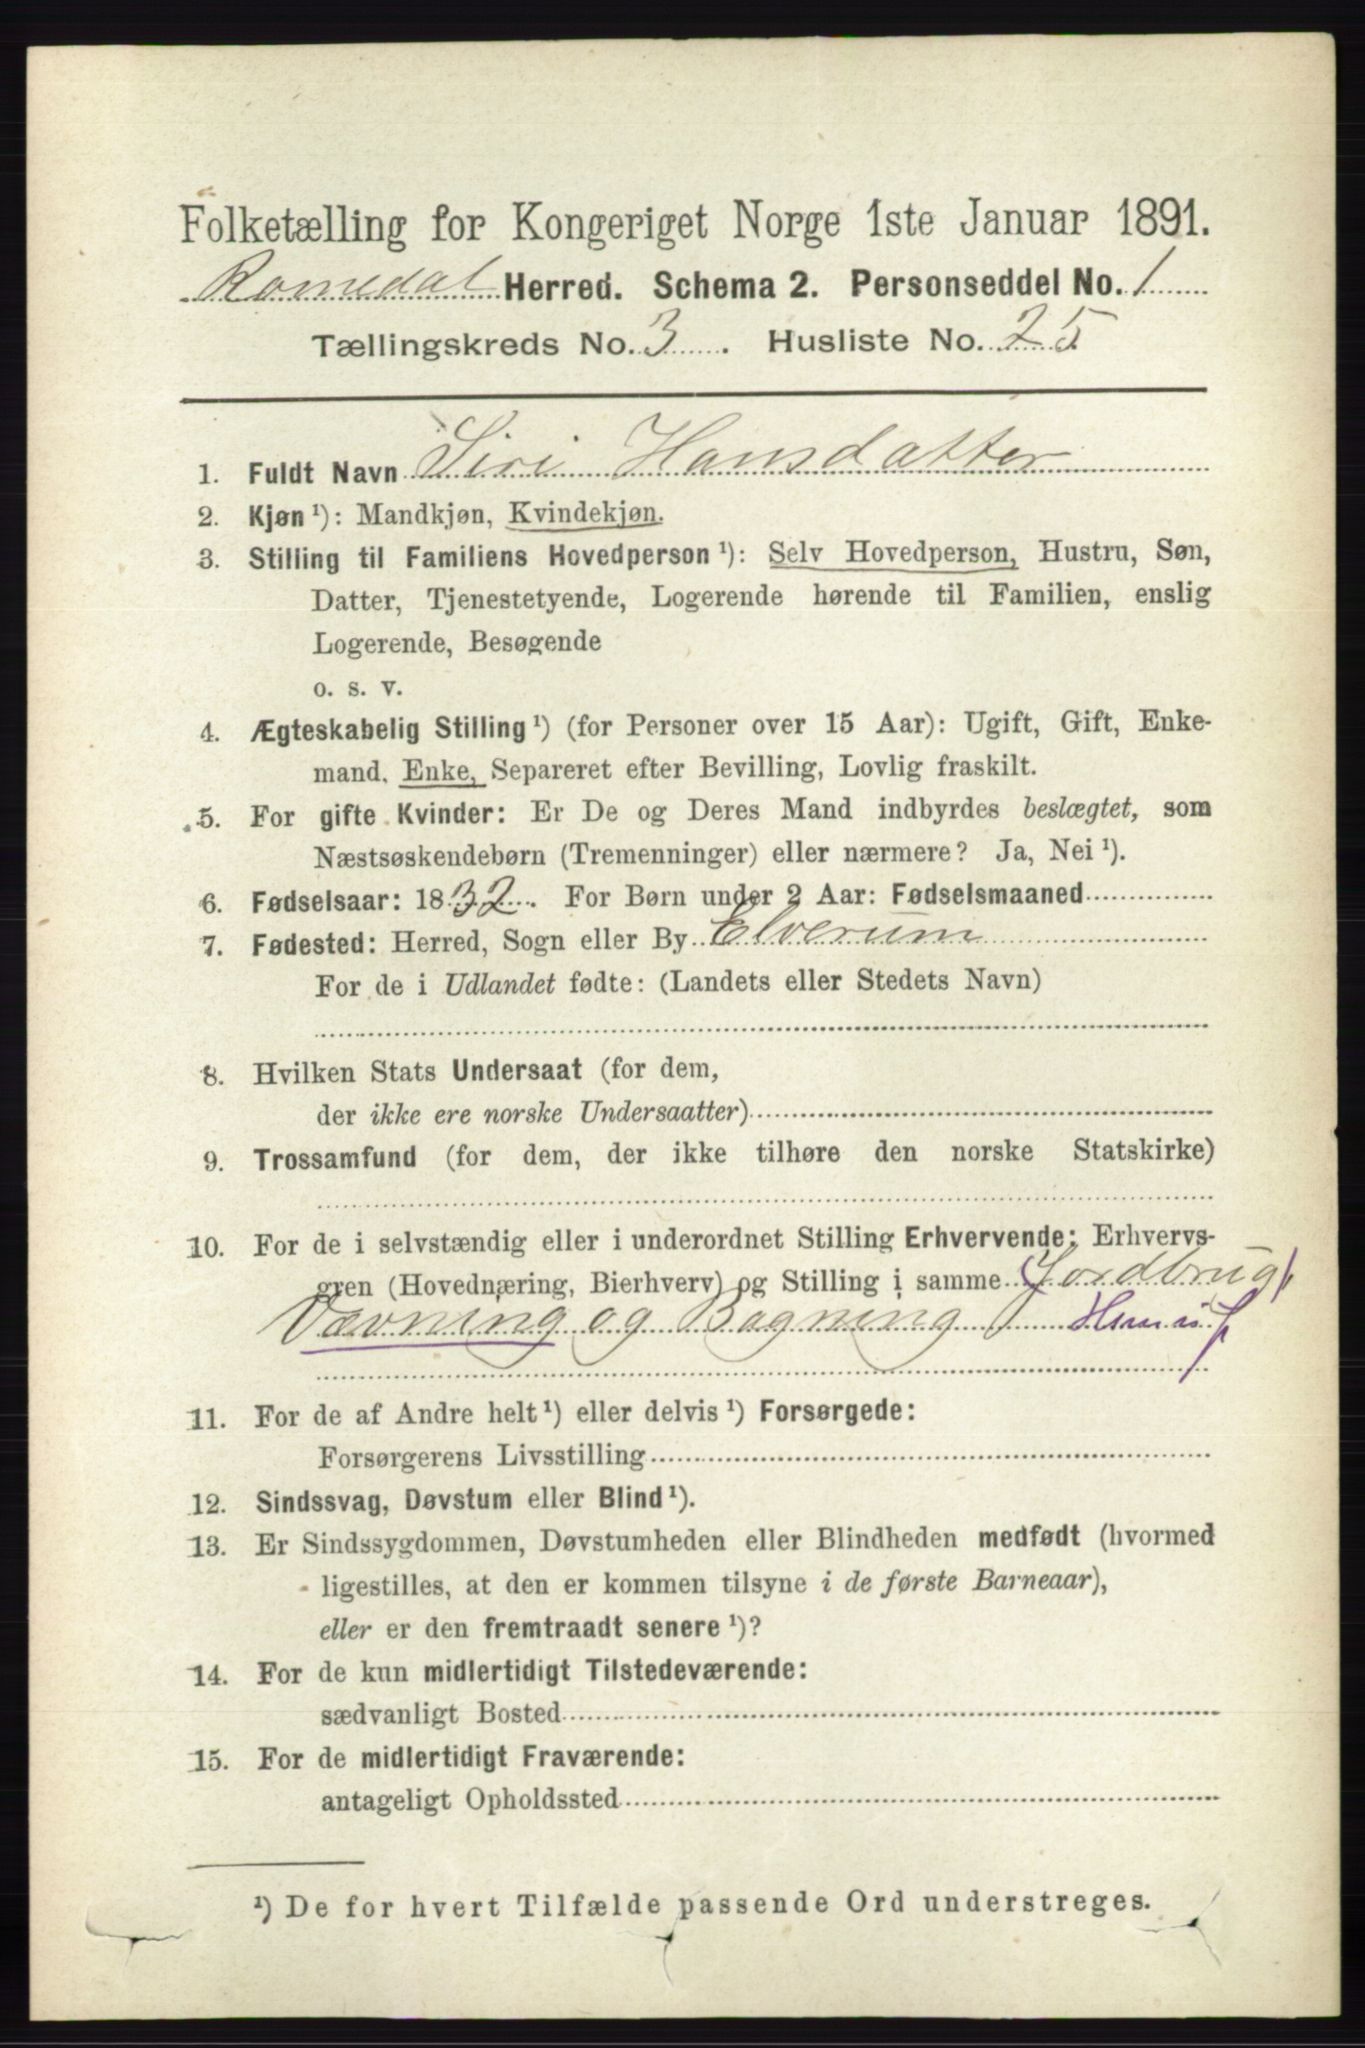 Folketælling for Kongeriget Norge 1ste Januar 1891.
Romedal Herred. Schema 2. Personseddel No. 1
Tællingskreds No. 3. Husliste No. 25
1. Fuldt Navn Siri Hansdatter
2. Kjøn ¹): Mandkjøn, Kvindekjøn.
3. Stilling til Familiens Hovedperson ¹): Selv Hovedperson, Hustru, Søn,
Datter, Tjenestetyende, Logerende hørende til Familien, enslig
Logerende, Besøgende
o. s. v.
4. Ægteskabelig Stilling ¹) (for Personer over 15 Aar): Ugift, Gift, Enke-
mand, Enke, Separeret efter Bevilling, Lovlig fraskilt.
5. For gifte Kvinder: Er De og Deres Mand indbyrdes beslægtet, som
Næstsøskendebørn (Tremenninger) eller nærmere? Ja, Nei ¹).
6. Fødselsaar: 1832. For Børn under 2 Aar: Fødselsmaaned
7. Fødested: Herred, Sogn eller By Elverum
For de i Udlandet fødte: (Landets eller Stedets Navn)
8. Hvilken Stats Undersaat (for dem,
der ikke ere norske Undersaatter)
9. Trossamfund (for dem, der ikke tilhøre den norske Statskirke)
10. For de i selvstændig eller i underordnet Stilling Erhvervende: Erhvervs-
gren (Hovednæring, Bierhverv) og Stilling i samme Jordbrug
Vævning og Bagning
11. For de af Andre helt ¹) eller delvis ¹) Forsørgede:
Forsørgerens Livsstilling
12. Sindssvag, Døvstum eller Blind ¹).
13. Er Sindssygdommen, Døvstumheden eller Blindheden medfødt (hvormed
ligestilles, at den er kommen tilsyne i de første Barneaar),
eller er den fremtraadt senere ¹)?
14. For de kun midlertidigt Tilstedeværende:
sædvanligt Bosted
15. For de midlertidigt Fraværende:
antageligt Opholdssted
¹) De for hvert Tilfælde passende Ord understreges.